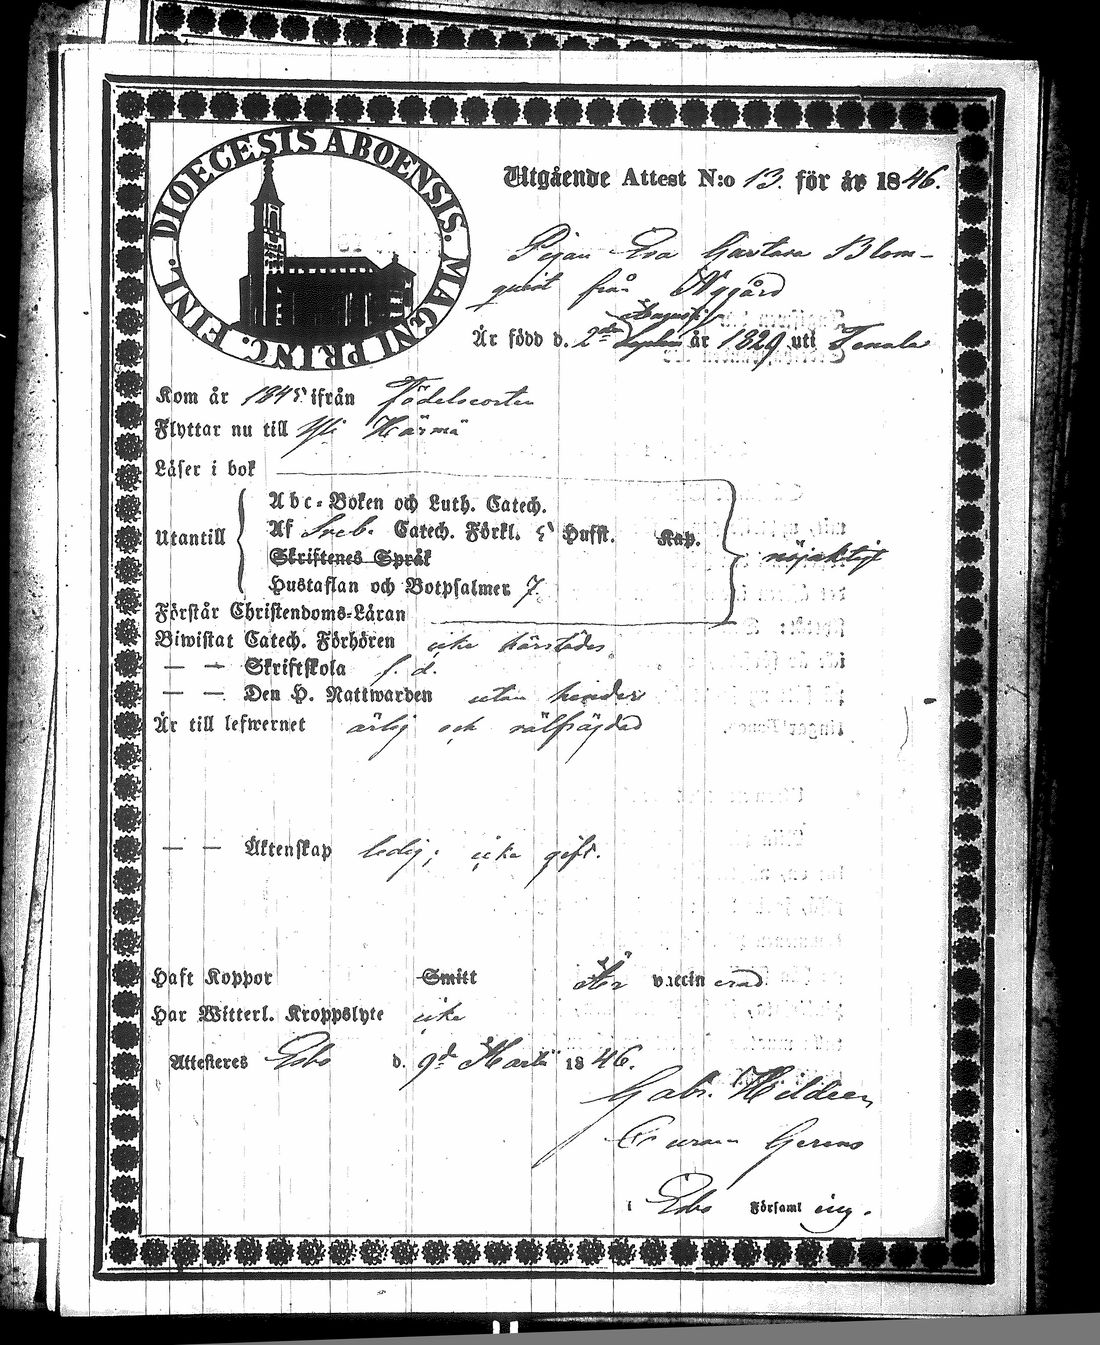 DIOECESIS ABOENSIS. MAGNI PRINC. FINL.
Utgående Attest N:o 13. för år 1846.
Pigan Eva Gustava Blom-
quist från Nygård
Augusti
Är född d. 2dra Septem år 1829 uti Tenala
Kom år 1845 ifrån Födelseorten
Flyttar nu till Härmä
Läser i bok
Abc-Boken och Luth. Catech.
Utantill Af Sveb. Catech. Förkl. 5 Hufst. Kap. nöjaktigt
Skriftenes Språk
Hustaflan och Botpsalmer 7.
Förstår Christendoms-Läran
Biwistat Catech. Förhören icke härstädes
— — Skriftskola f. d.
— — Den H. Nattwarden utan hinder
Är till lefwernet ärlig och välfrägdad
— — Äktenskap ledig; icke gift.
Haft Koppor Smitt Är vaccinerad
Har Witterl. Kroppslyte icke
Attesteras Esbo d. 9d Martii 1846.
Gabr.
Curam Gerens
i Esbo Församling.